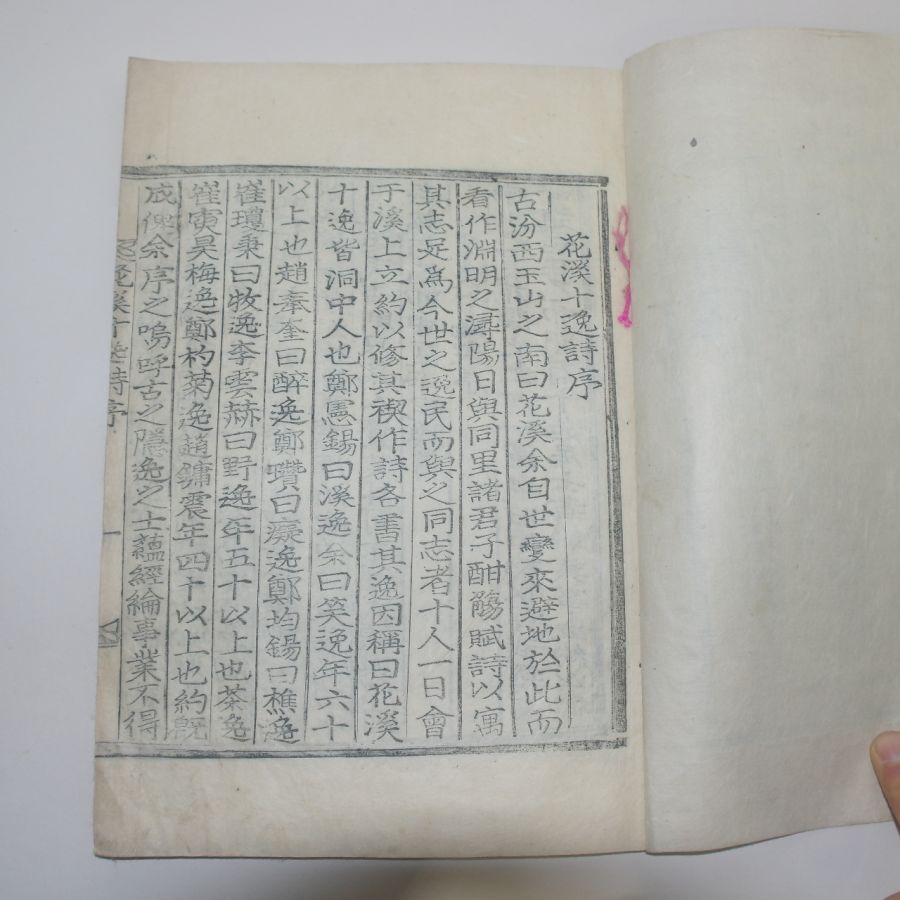 花溪十逸詩序
古汾西玉山之南曰花溪余自世變來避地於此而
看作淵明之潯陽日與同里諸君子酣觴賦詩以寓
其志足爲今世之逸民而與之同志者十人一日會
于溪上立約以修其禊作詩各書其逸因稱曰花溪
十逸皆洞中人也鄭憲錫曰溪逸余曰笑逸年六十
以上也趙奉奎曰醉逸鄭瓚曰癡逸鄭均錫曰樵逸
崔瓊秉曰牧逸李雲赫曰野逸年五十以上也茶逸
崔寅昊梅逸鄭杓菊逸趙鏞震年四十以上也約旣
成俾余序之嗚呼古之隱逸之士蘊經綸事業不得
花溪十逸詩序 一